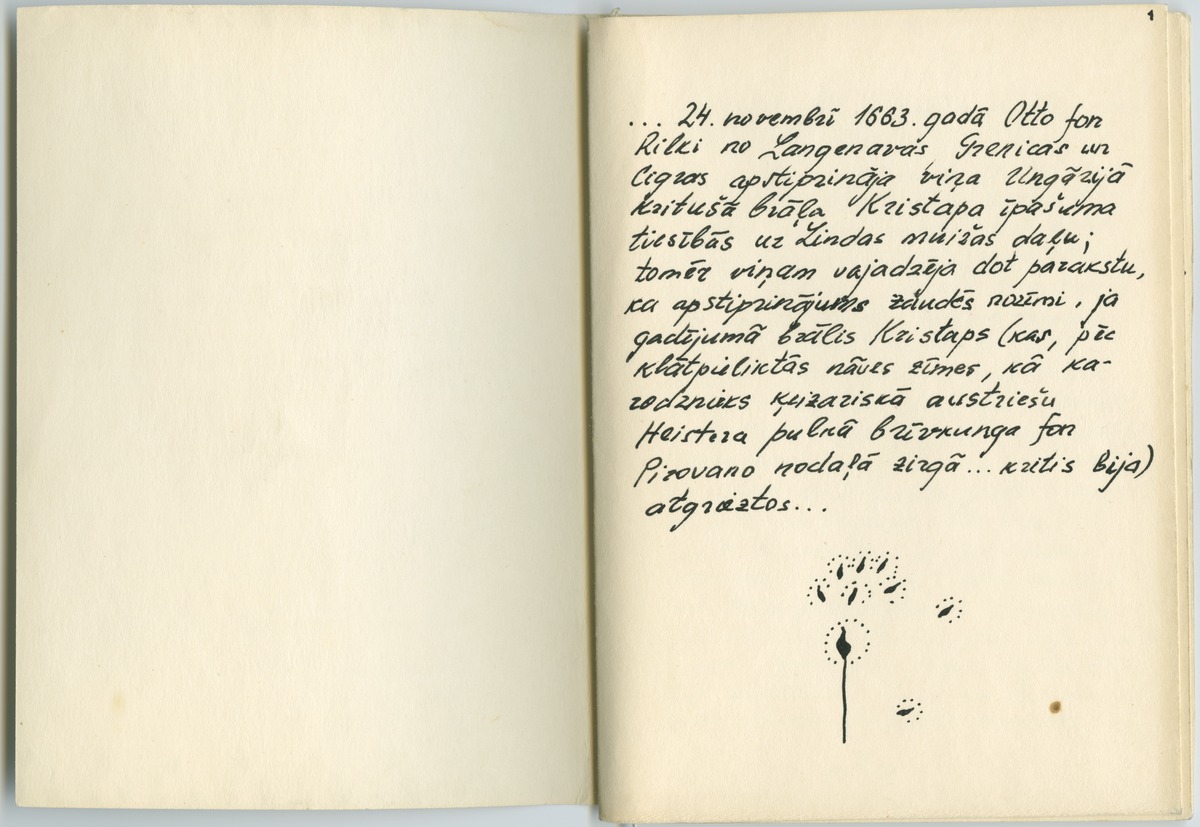 1
... 24. novembrī 1663. gadā Otto fon
Rilki no Langenavas Grenicas un
Cigras apstiprināja viņa Ungārijā
kritušā brāļa Kristapa īpašuma
tiesībās uz Lindas muižas daļu;
tomēr viņam vajadzēja dot parakstu,
ka apstiprinājums zaudēs nozīmi, ja
gadījumā brālis Kristaps (kas, pēc
klātpieliktās nāves zīmes, kā ka-
rodznieks ķeizariskā austriešu
Heistera pulkā brīvkunga fon
Pirovano nodaļā zirgā... kritis bija)
atgrieztos...